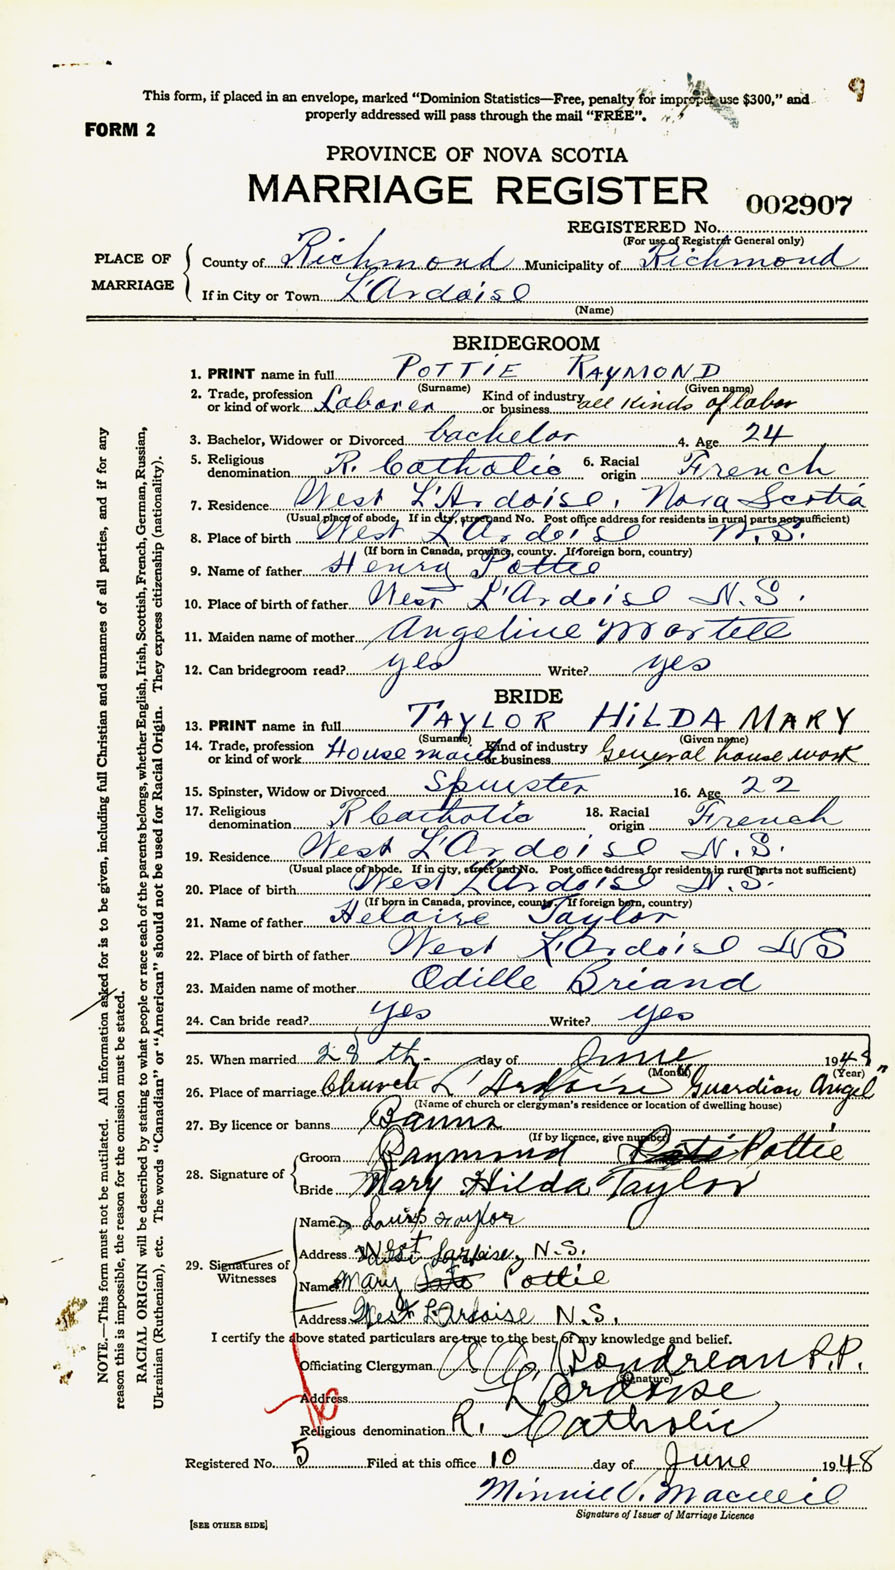 This form, if placed in an envelope, marked "Dominion Statistics—Free, penalty for improper use $300," and
properly addressed will pass through the mail "FREE".
FORM 2
PROVINCE OF NOVA SCOTIA
MARRIAGE REGISTER 002907
REGISTERED No.
(For use of Registrar General only)
PLACE OF MARRIAGE
County of Richmond Municipality of Richmond
If in City or Town L'Ardoise
(Name)
BRIDEGROOM
1. PRINT name in full POTTIE RAYMOND
(Surname) (Given name)
2. Trade, profession or kind of work Laborer Kind of industry or business all kinds of labor
3. Bachelor, Widower or Divorced bachelor 4. Age 24
5. Religious denomination R. Catholic 6. Racial origin French
7. Residence West L'Ardoise, Nova Scotia
(Usual place of abode. If in city, street and No. Post office address for residents in rural parts not sufficient)
8. Place of birth West L'Ardoise N.S.
(If born in Canada, province, county. If foreign born, country)
9. Name of father Henry Pottie
10. Place of birth of father West L'Ardoise N.S.
11. Maiden name of mother Angeline Martell
12. Can bridegroom read? yes Write? yes
BRIDE
13. PRINT name in full TAYLOR HILDA MARY
(Surname) (Given name)
14. Trade, profession or kind of work House maid Kind of industry or business General house work
15. Spinster, Widow or Divorced Spinster 16. Age 22
17. Religious denomination R Catholic 18. Racial origin French
19. Residence West L'Ardoise N.S.
(Usual place of abode. If in city, street and No. Post office address for residents in rural parts not sufficient)
20. Place of birth West L'Ardoise N.S.
(If born in Canada, province, county. If foreign born, country)
21. Name of father Helaire Taylor
22. Place of birth of father West L'Ardoise NS
23. Maiden name of mother Odille Briand
24. Can bride read? yes Write? yes
25. When married 28th day of June 1948
(Month) (Year)
26. Place of marriage Church L'Ardoise "Guardian Angel"
(Name of church or clergyman's residence or location of dwelling house)
27. By licence or banns Banns
(If by licence, give number)
28. Signature of
Groom Raymond Pottie
Bride Mary Hilda Taylor
29. Signatures of Witnesses
Name Louis Taylor
Address West Lardoise, N.S.
Name Mary Pottie
Address West L'Ardoise N.S.
I certify the above stated particulars are true to the best of my knowledge and belief.
Officiating Clergyman A. A. Poudrean P.P.
(Signature)
Address L'Ardoise
Religious denomination R. Catholic
Registered No. 5 Filed at this office 10 day of June 1948
Minnie V. MacNeil
Signature of Issuer of Marriage Licence
[SEE OTHER SIDE]
NOTE.—This form must not be mutilated. All information asked for is to be given, including full Christian and surnames of all parties, and if for any
reason this is impossible, the reason for the omission must be stated.
RACIAL ORIGIN will be described by stating to what people or race each of the parents belongs, whether English, Irish, Scottish, French, German, Russian,
Ukrainian (Ruthenian), etc. The words "Canadian" or "American" should not be used for Racial Origin. They express citizenship (nationality).